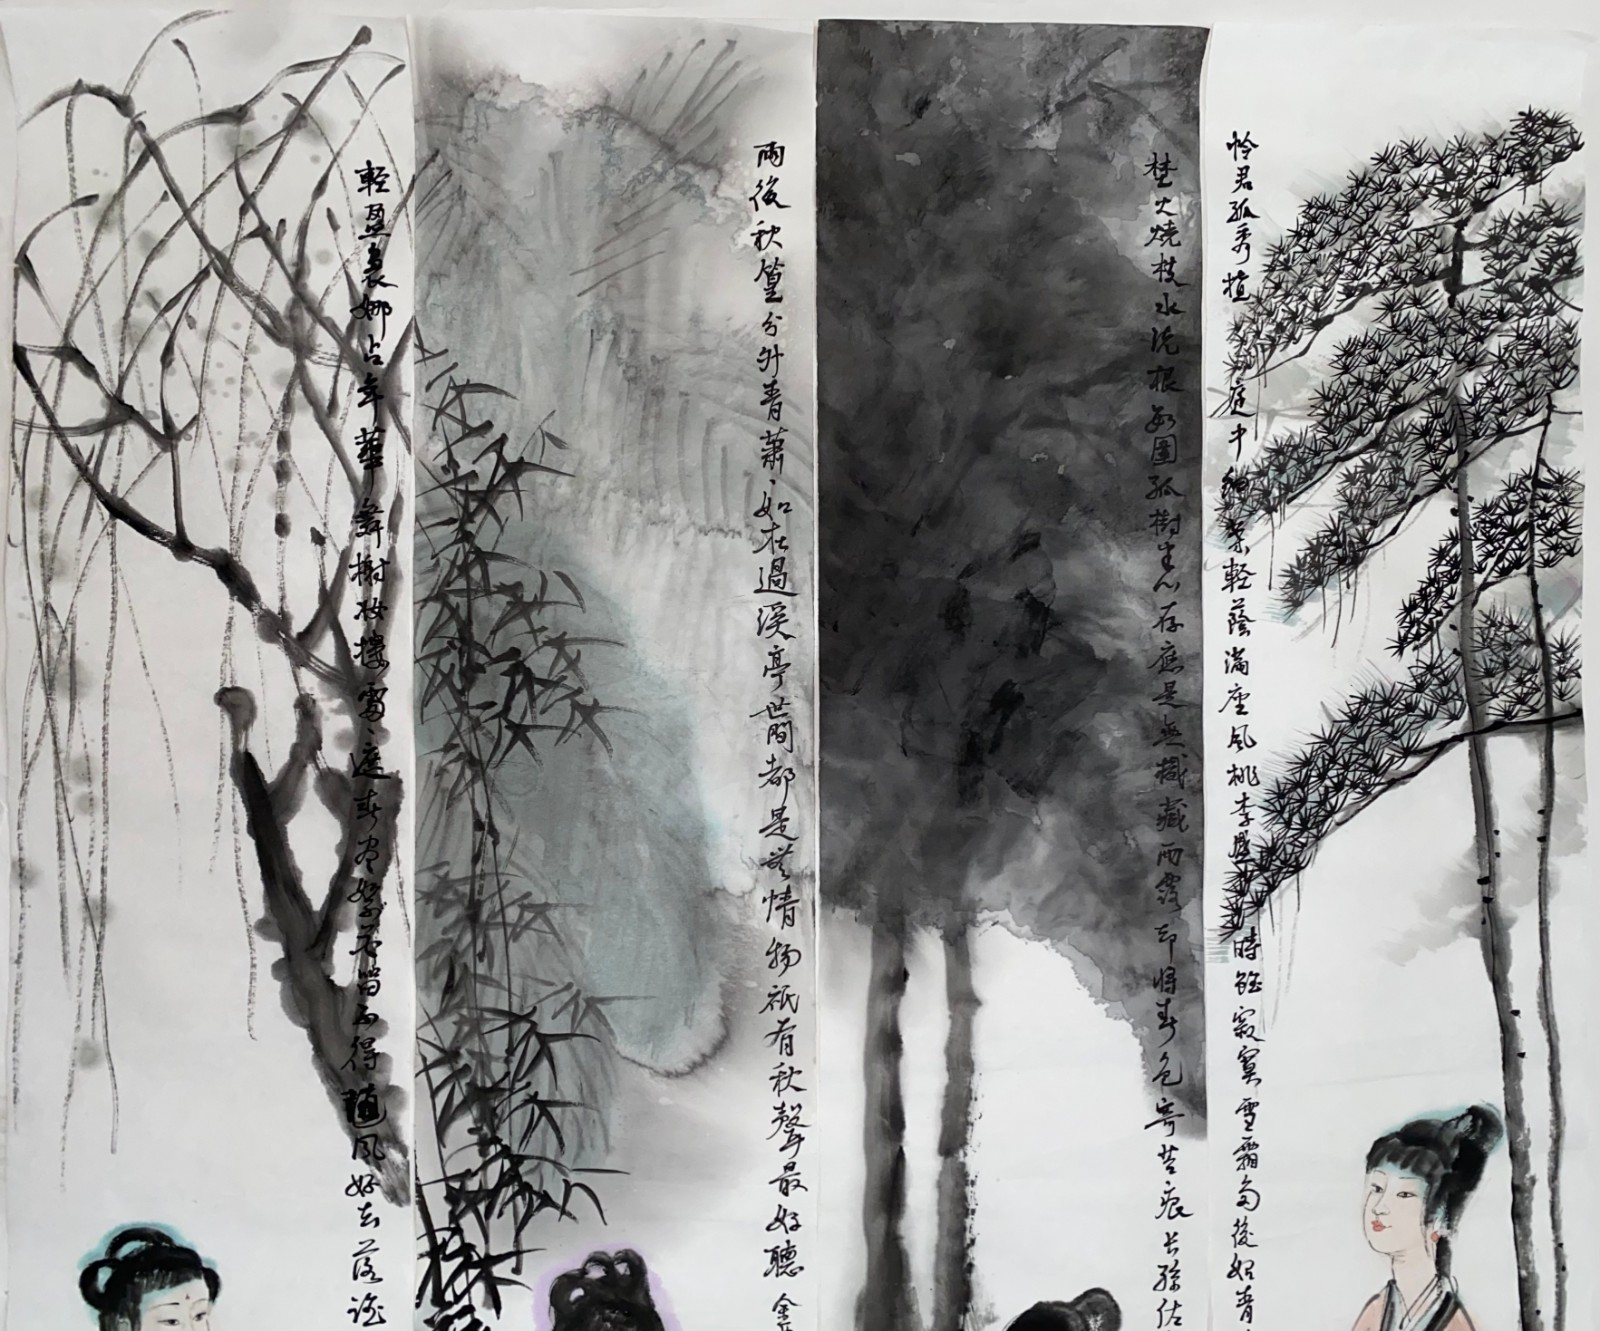 怜君孤秀植庭中細葉輕蔭滿座風桃李盛時雖寂寞雪霜多後始青
焚火燒枝水洗根數圍孤樹半心存應是無機藏雨露却將春色寄苔痕長孫佐
雨後秋篁分外青蕭、如在過溪亭世間都是無情物祇有秋聲最好聽
輕盈裊娜占年華舞榭妝樓處、遮春盡絮花留不得隨風好去落誰